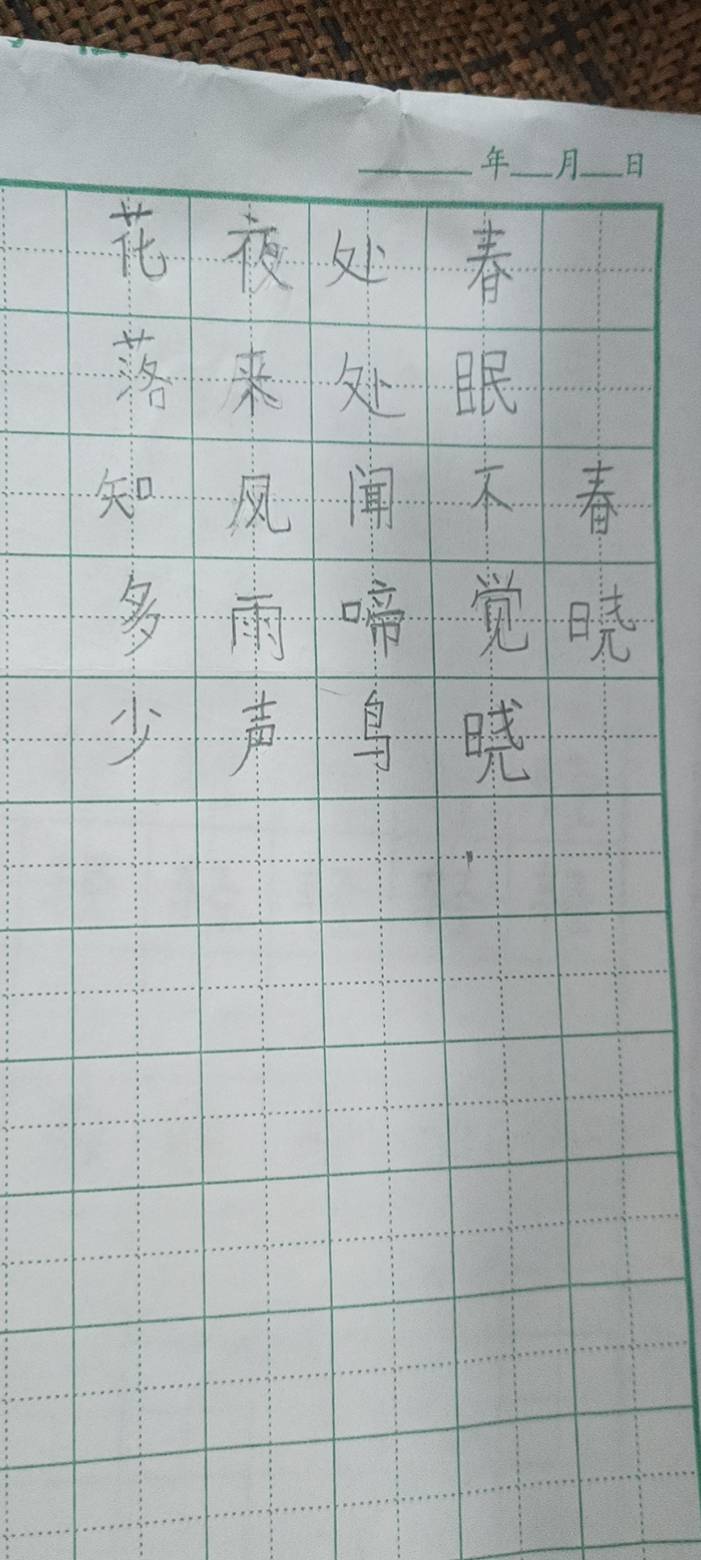 年月日
春晓
春眠不觉晓
处处闻啼鸟
夜来风雨声
花落知多少